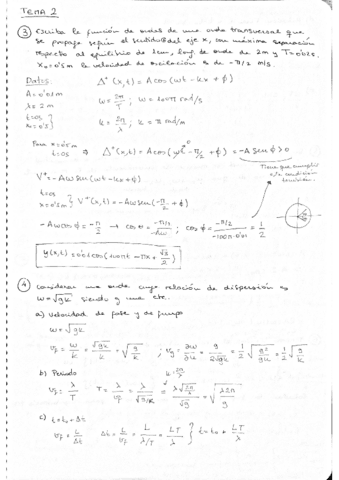 TEMA 2
③ Escriba la función de ondas de una onda transversal que
se propaga según el sentido del eje x, con máxima separación
respecto al equilibrio de 1cm, long. de onda de 2m y T=0'02s.
X₀=0'5m la velocidad de oscilación es de -π/2 m/s.
Datos:
A=0'01m
λ=2m
t=0s
x₀=0'5
Δ⁺(x,t) = A cos(wt - kx + ϕ)
w = 2π/T ; w = 100π rad/s
k = 2π/λ ; k = π rad/m
Para x=0'5m
t=0s ⇒ Δ⁺(x,t) = A cos(wt⁰ - π/2 + ϕ) = -A sen ϕ > 0
Tiene que cumplir
condición
V⁺ = -Aw sen(wt - kx + ϕ)
t=0s
x=0'5m } V⁺(x,t) = -Aw sen(-π/2 + ϕ)
-Aw cos ϕ = -π/2 → cos ϕ = (-π/2)/(-Aw) ; cos ϕ = (-π/2)/(-100π·0'01) = 1/2
④ Considerar una onda cuya relación de dispersión es
w=√gk siendo g una cte.
a) Velocidad de fase y de grupo
w=√gk
v_f = w/k = √gk/k = √(g/k) ; v_g = ∂w/∂k = g/(2√gk) = 1/2 √(g²/gk) = 1/2 √(g/k)
b) Periodo
k = 2π/λ
v_f = λ/T T = λ/v_f = λ/√(g/k) = λ√(2π/λ)/√g = √(λ2π/g)
c) t = t₀ + Δt
v_f = L/Δt Δt = L/v_f = L/(λ/T) = LT/λ } t = t₀ + LT/λ